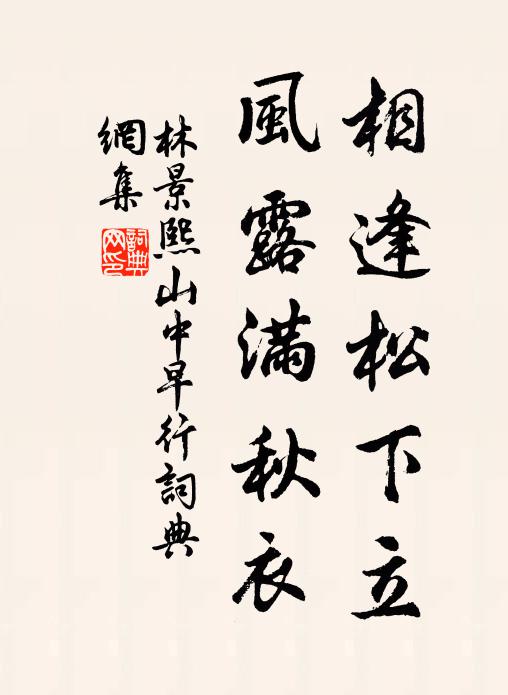 相逢松下立
風露滿秋衣
林景熙山中早行詞典
網集
詞典
网印